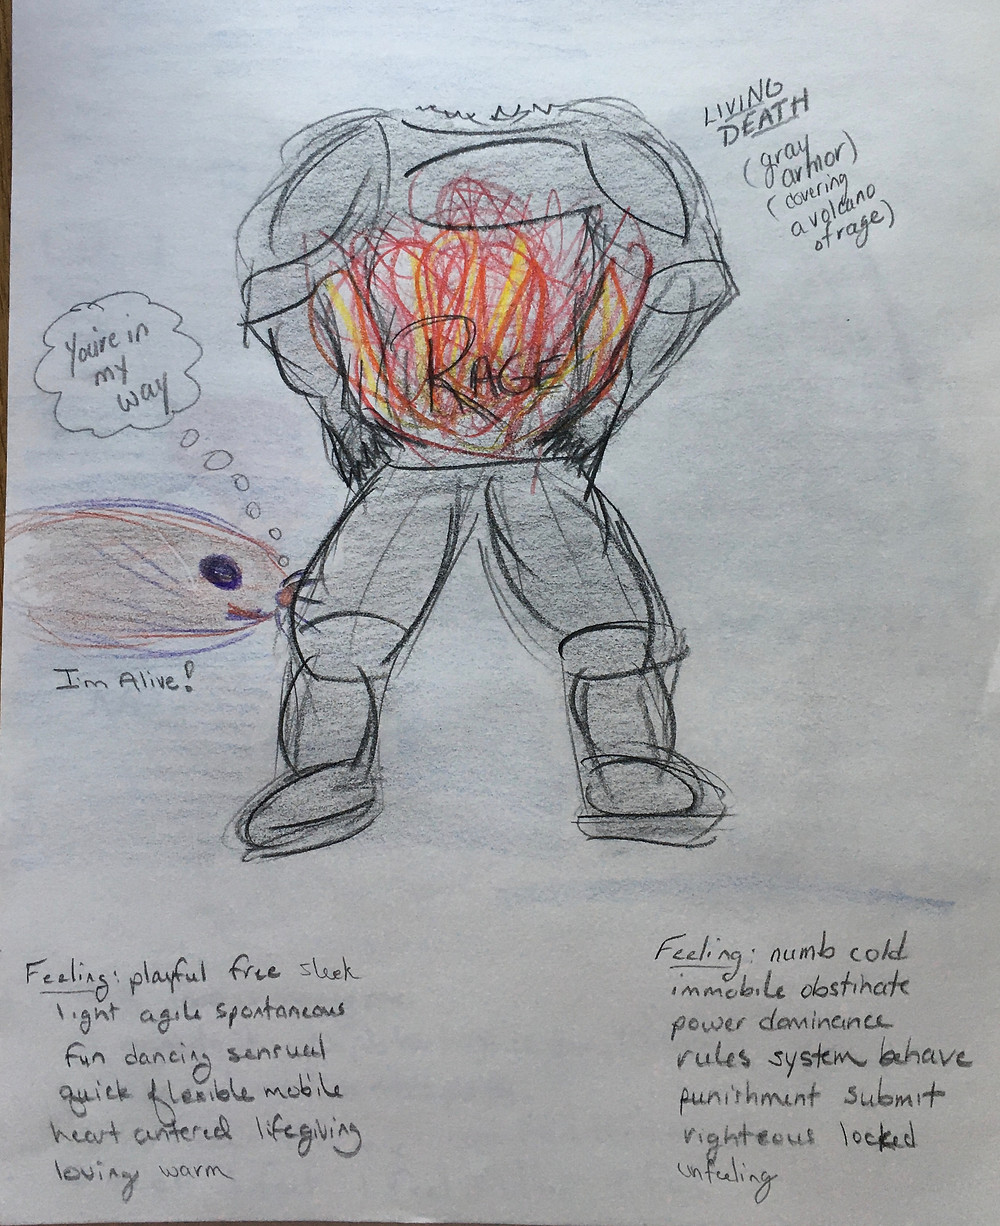 LIVING
DEATH
(gray
armor)
(covering
a volcano
of rage)
You're in
my
way
RAGE
I'm Alive!
Feeling: playful free sleek
light agile spontaneous
fun dancing sensual
quick flexible mobile
heart centered lifegiving
loving warm
Feeling: numb cold
immobile obstinate
power dominance
rules system behave
punishment submit
righteous locked
unfeeling